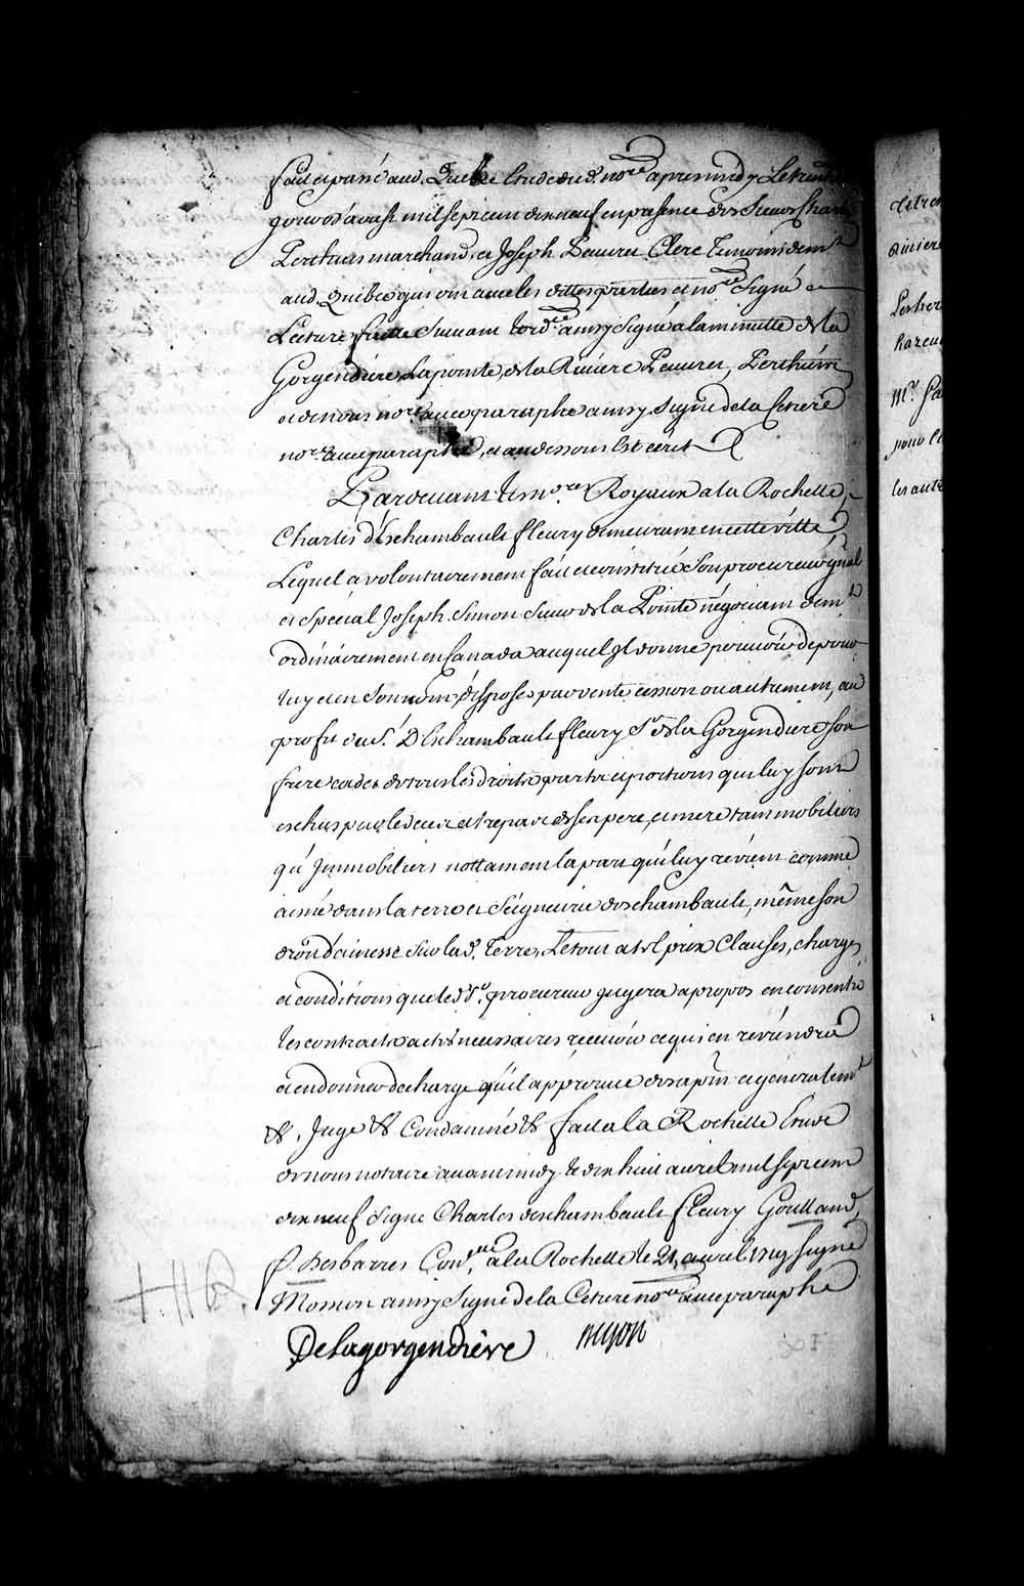 fait et passé aud. Quebec Etude dud. no.re apres midy Le trente
jour d'aoust mil sept cent dix neuf en presence des Sieurs Charles
Perthuis marchand, et Joseph Peuvret Clerc temoins dem.t
aud. Quebec qui ont avec les dittes parties et no.re Signé
Lecture faitte Suivant l'ord.ce ainsy Signé a la minutte de la
Gorgendiere, Lapointe, de la Riviere Peuvret, Perthuis
et de nous no.re avec paraphe ainsy Signé de la Cetiere
no.re avec paraphe, et au dessous Est écrit
Pardevant les no.res Royaux a la Rochelle,
Charles d'Eschambault fleury demeurant en cette ville
Lequel a volontairement fait et constitué Son procureur gñal
et Special Joseph Simon Sieur de la Pointe négociant dem.t
ordinairement en Canada auquel Il donne pouvoir de pour
luy et en Son nom disposer par vente cession ou autrement, au
profit du S.r D'Eschambault fleury S.r de la Gorgendiere Son
frere cadet de tous les droits parts et portions qui luy Sont
eschus par le deces et trepas de Ses pere, et mere tant mobiliers
qu'Immobiliers nottament la part qui luy revient comme
ainé dans la terre et Seigneurie deschambault, même Son
droit d'ainesse Sur lad. terre, Le tout a tel prix Clauses, charges
et conditions que led. S.r procureur jugera a propos en consentir
les contrats et actes necessaires recevoir ce qui en reviendra
et en donner decharge qu'il approuve des a pñt et generalem.t
&. Jugé & Condamné & fait a la Rochelle Etude
de nous notaire avant midy le dix huit avril mil sept cent
dix neuf Signé Charles deschambault fleury Goulland,
P. Desbarres Con.lle a la Rochelle le 21, avril 1719 Signé
Momon ainsy Signé de la Cetiere no.re avec paraphe
Delagorgendière begon